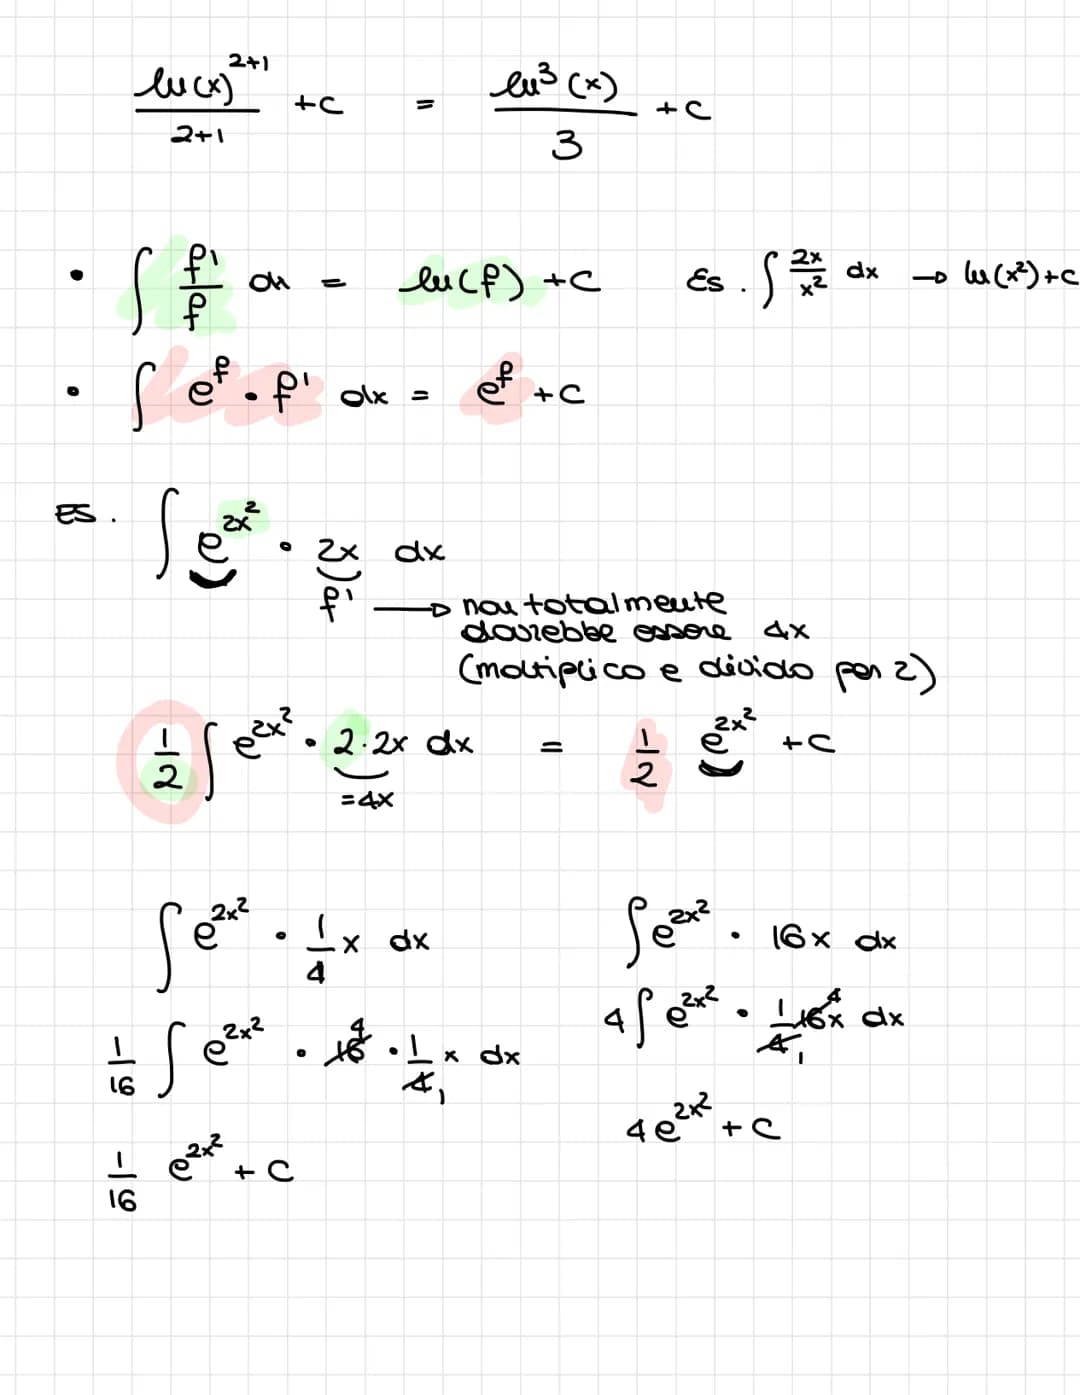 ln(x)^{2+1}/2+1 +c = ln³(x)/3 +c
• ∫ f'/f dx = ln(f) +c Es. ∫ 2x/x² dx → ln(x²)+c
• ∫ e^f · f' dx = e^f +c
ES. ∫ e^{2x²} · 2x dx
f' → non totalmente
dovrebbe essere 4x
(moltiplico e divido per 2)
1/2 ∫ e^{2x²} · 2·2x dx = 1/2 e^{2x²} +c
=4x
∫ e^{2x²} · 1/4 x dx
1/16 ∫ e^{2x²} · 16 4 · 1/4 1 x dx
1/16 e^{2x²} + c
∫ e^{2x²} · 16x dx
4 ∫ e^{2x²} · 1/4 1 16 4 x dx
4e^{2x²} + c